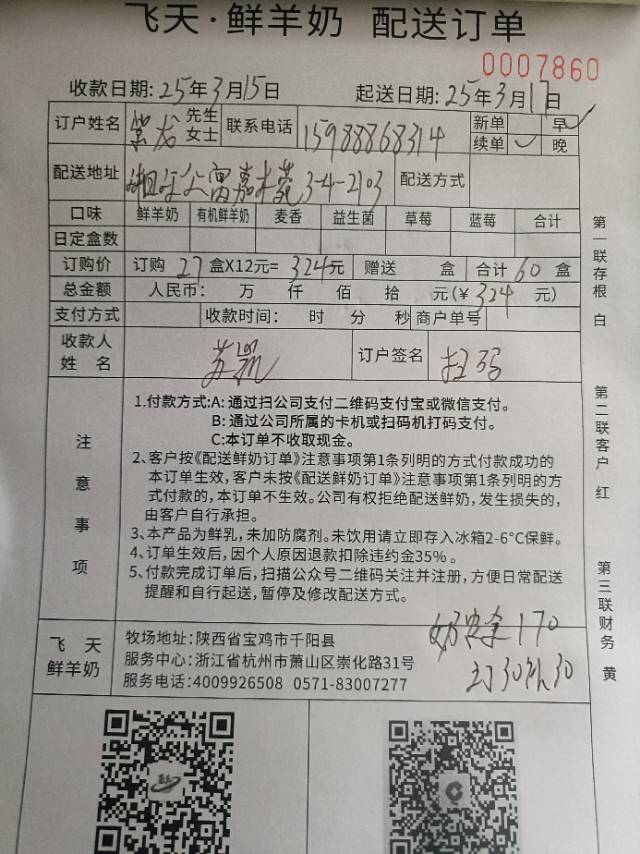 飞天·鲜羊奶 配送订单
0007860
收款日期: 25年3月15日 起送日期: 25年3月17日
订户姓名 龙 先生 女士 联系电话 15988868314 新单 早✓
续单 ✓ 晚
配送地址 公寓嘉木苑3-4-2103 配送方式
口味 鲜羊奶 有机鲜羊奶 麦香 益生菌 草莓 蓝莓 合计
日定盒数
订购价 订购 27 盒X12元= 324元 赠送 盒 合计60盒
总金额 人民币: 万 仟 佰 拾 元(¥324 元)
支付方式 收款时间: 时 分 秒 商户单号
收款人姓名 苏凯 订户签名 扫码
注意事项
1.付款方式:A: 通过扫公司支付二维码支付宝或微信支付。
B: 通过公司所属的卡机或扫码机打码支付。
C:本订单不收取现金。
2、客户按《配送鲜奶订单》注意事项第1条列明的方式付款成功的
本订单生效，客户未按《配送鲜奶订单》注意事项第1条列明的方
式付款的，本订单不生效。公司有权拒绝配送鲜奶，发生损失的，
由客户自行承担。
3、本产品为鲜乳，未加防腐剂。未饮用请立即存入冰箱2-6°C保鲜。
4、订单生效后，因个人原因退款扣除违约金35% 。
5、付款完成订单后，扫描公众号二维码关注并注册，方便日常配送
提醒和自行起送，暂停及修改配送方式。
奶票拿170
订30补30
飞天
鲜羊奶
牧场地址: 陕西省宝鸡市千阳县
服务中心: 浙江省杭州市萧山区崇化路31号
服务电话: 4009926508 0571-83007277
第一联存根 白
第二联客户 红
第三联财务 黄